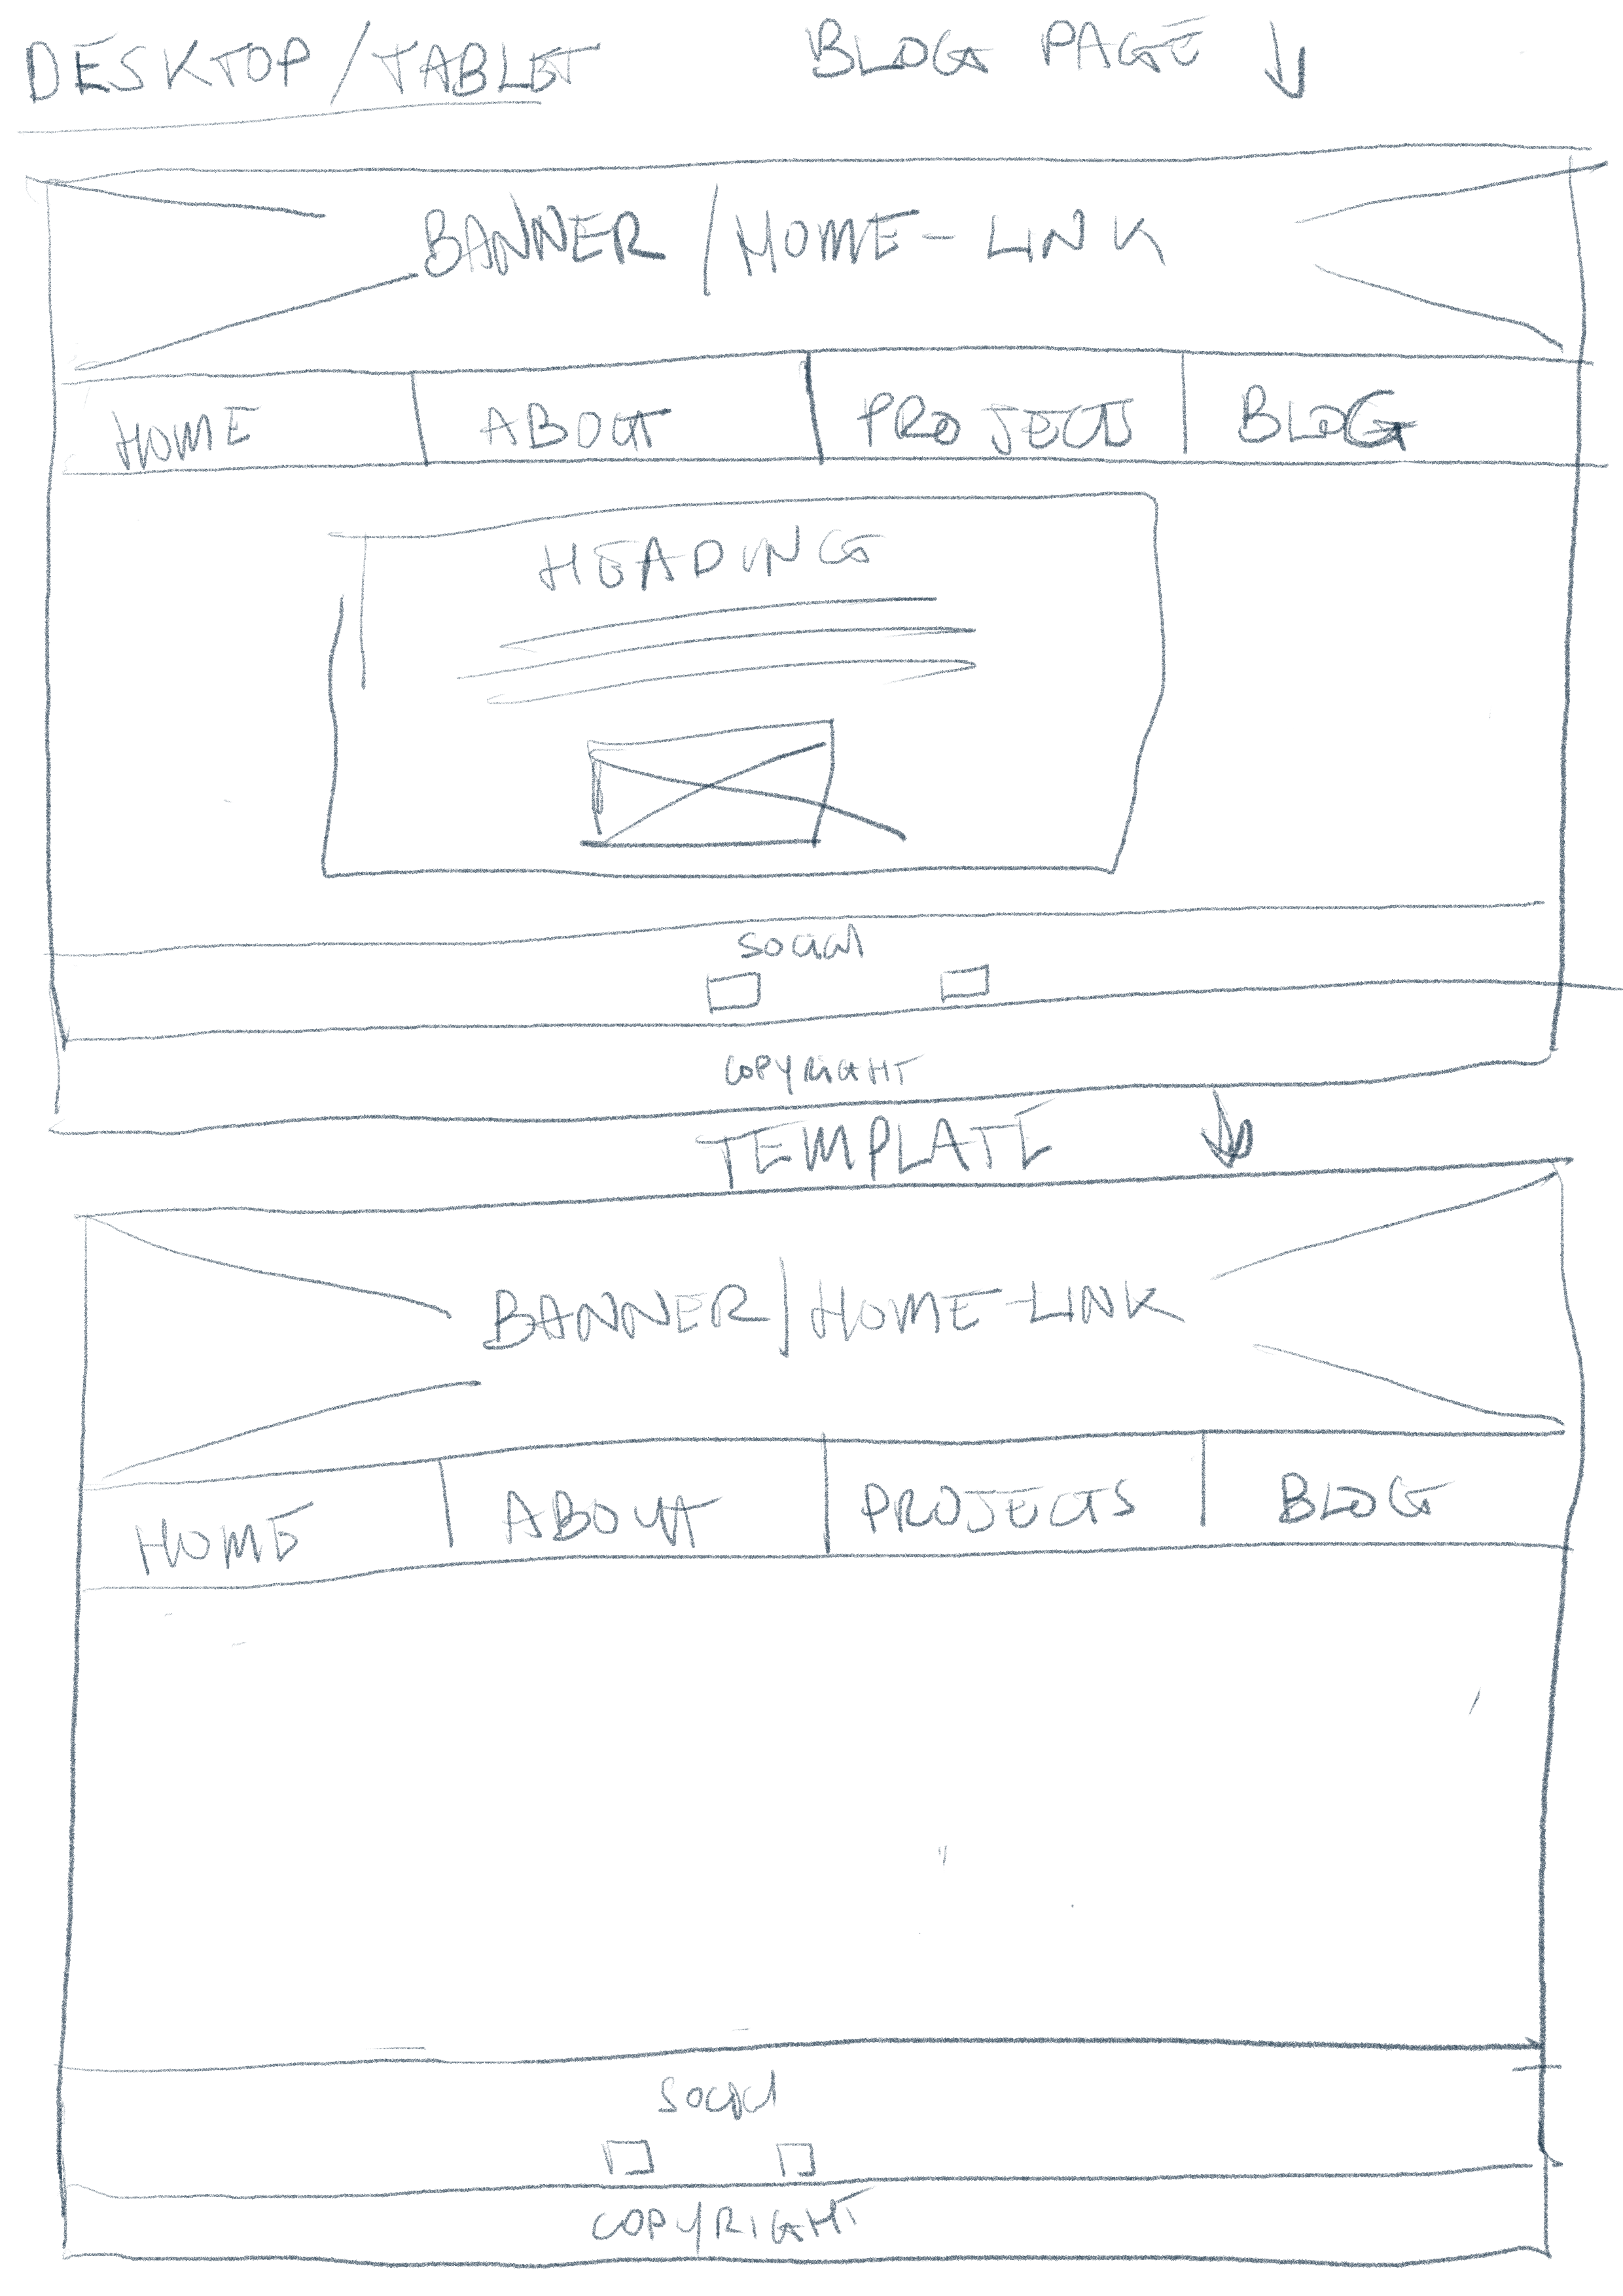 DESKTOP/TABLET
BLOG PAGE
BANNER/HOME-LINK
HOME ABOUT PROJECTS BLOG
HEADING
SOCIAL
COPYRIGHT
TEMPLATE
BANNER/HOME-LINK
HOME ABOUT PROJECTS BLOG
SOCIAL
COPYRIGHT